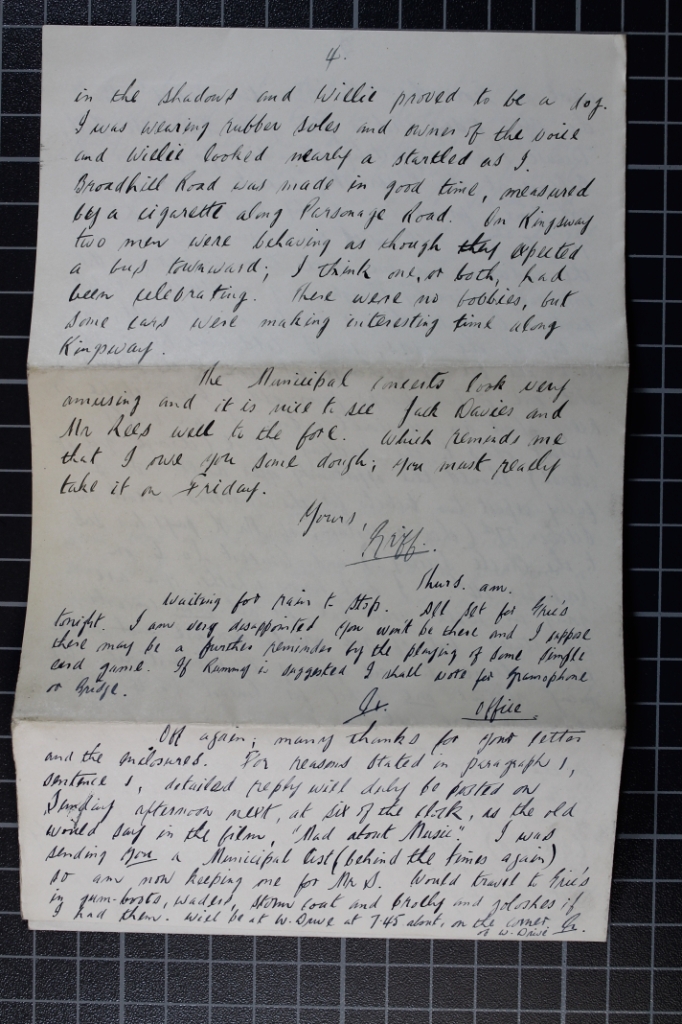 4.
in the shadows and Willie proved to be a dog.
I was wearing rubber soles and owner of the voice
and Willie looked nearly a startled as I.
Broadhill Road was made in good time, measured
by a cigarette along Parsonage Road. On Kingsway
two men were behaving as though they expected
a bus townward; I think one, or both, had
been celebrating. There were no bobbies, but
some cars were making interesting time along
Kingsway.
The Municipal Concerts look very
amusing and it is nice to see Jack Davies and
Mr Rees well to the fore. Which reminds me
that I owe you some dough; you must really
take it on Friday.
Yours,
Griff.
Thurs. am.
Waiting for rain to stop. All set for Eric's
tonight. I am very disappointed you won't be there and I suppose
there may be a further reminder by the playing of some single
card game. If Rummy is suggested I shall vote for Gramophone
or Bridge.
Gr. Office.
Off again; many thanks for your letter
and the enclosures. For reasons stated in paragraph 1,
sentence 1, detailed reply will duly be posted on
Sunday afternoon next, at six of the clock, as the old
would say in the film, "Mad about Music". I was
sending you a Municipal list (behind the times again)
so am now keeping one for Mr D. Would travel to Eric's
in gum-boots, waders, storm coat and brolly and goloshes if
I had them. Will be at W. Drive at 7.45 about, on the corner
of W. Drive Gr.